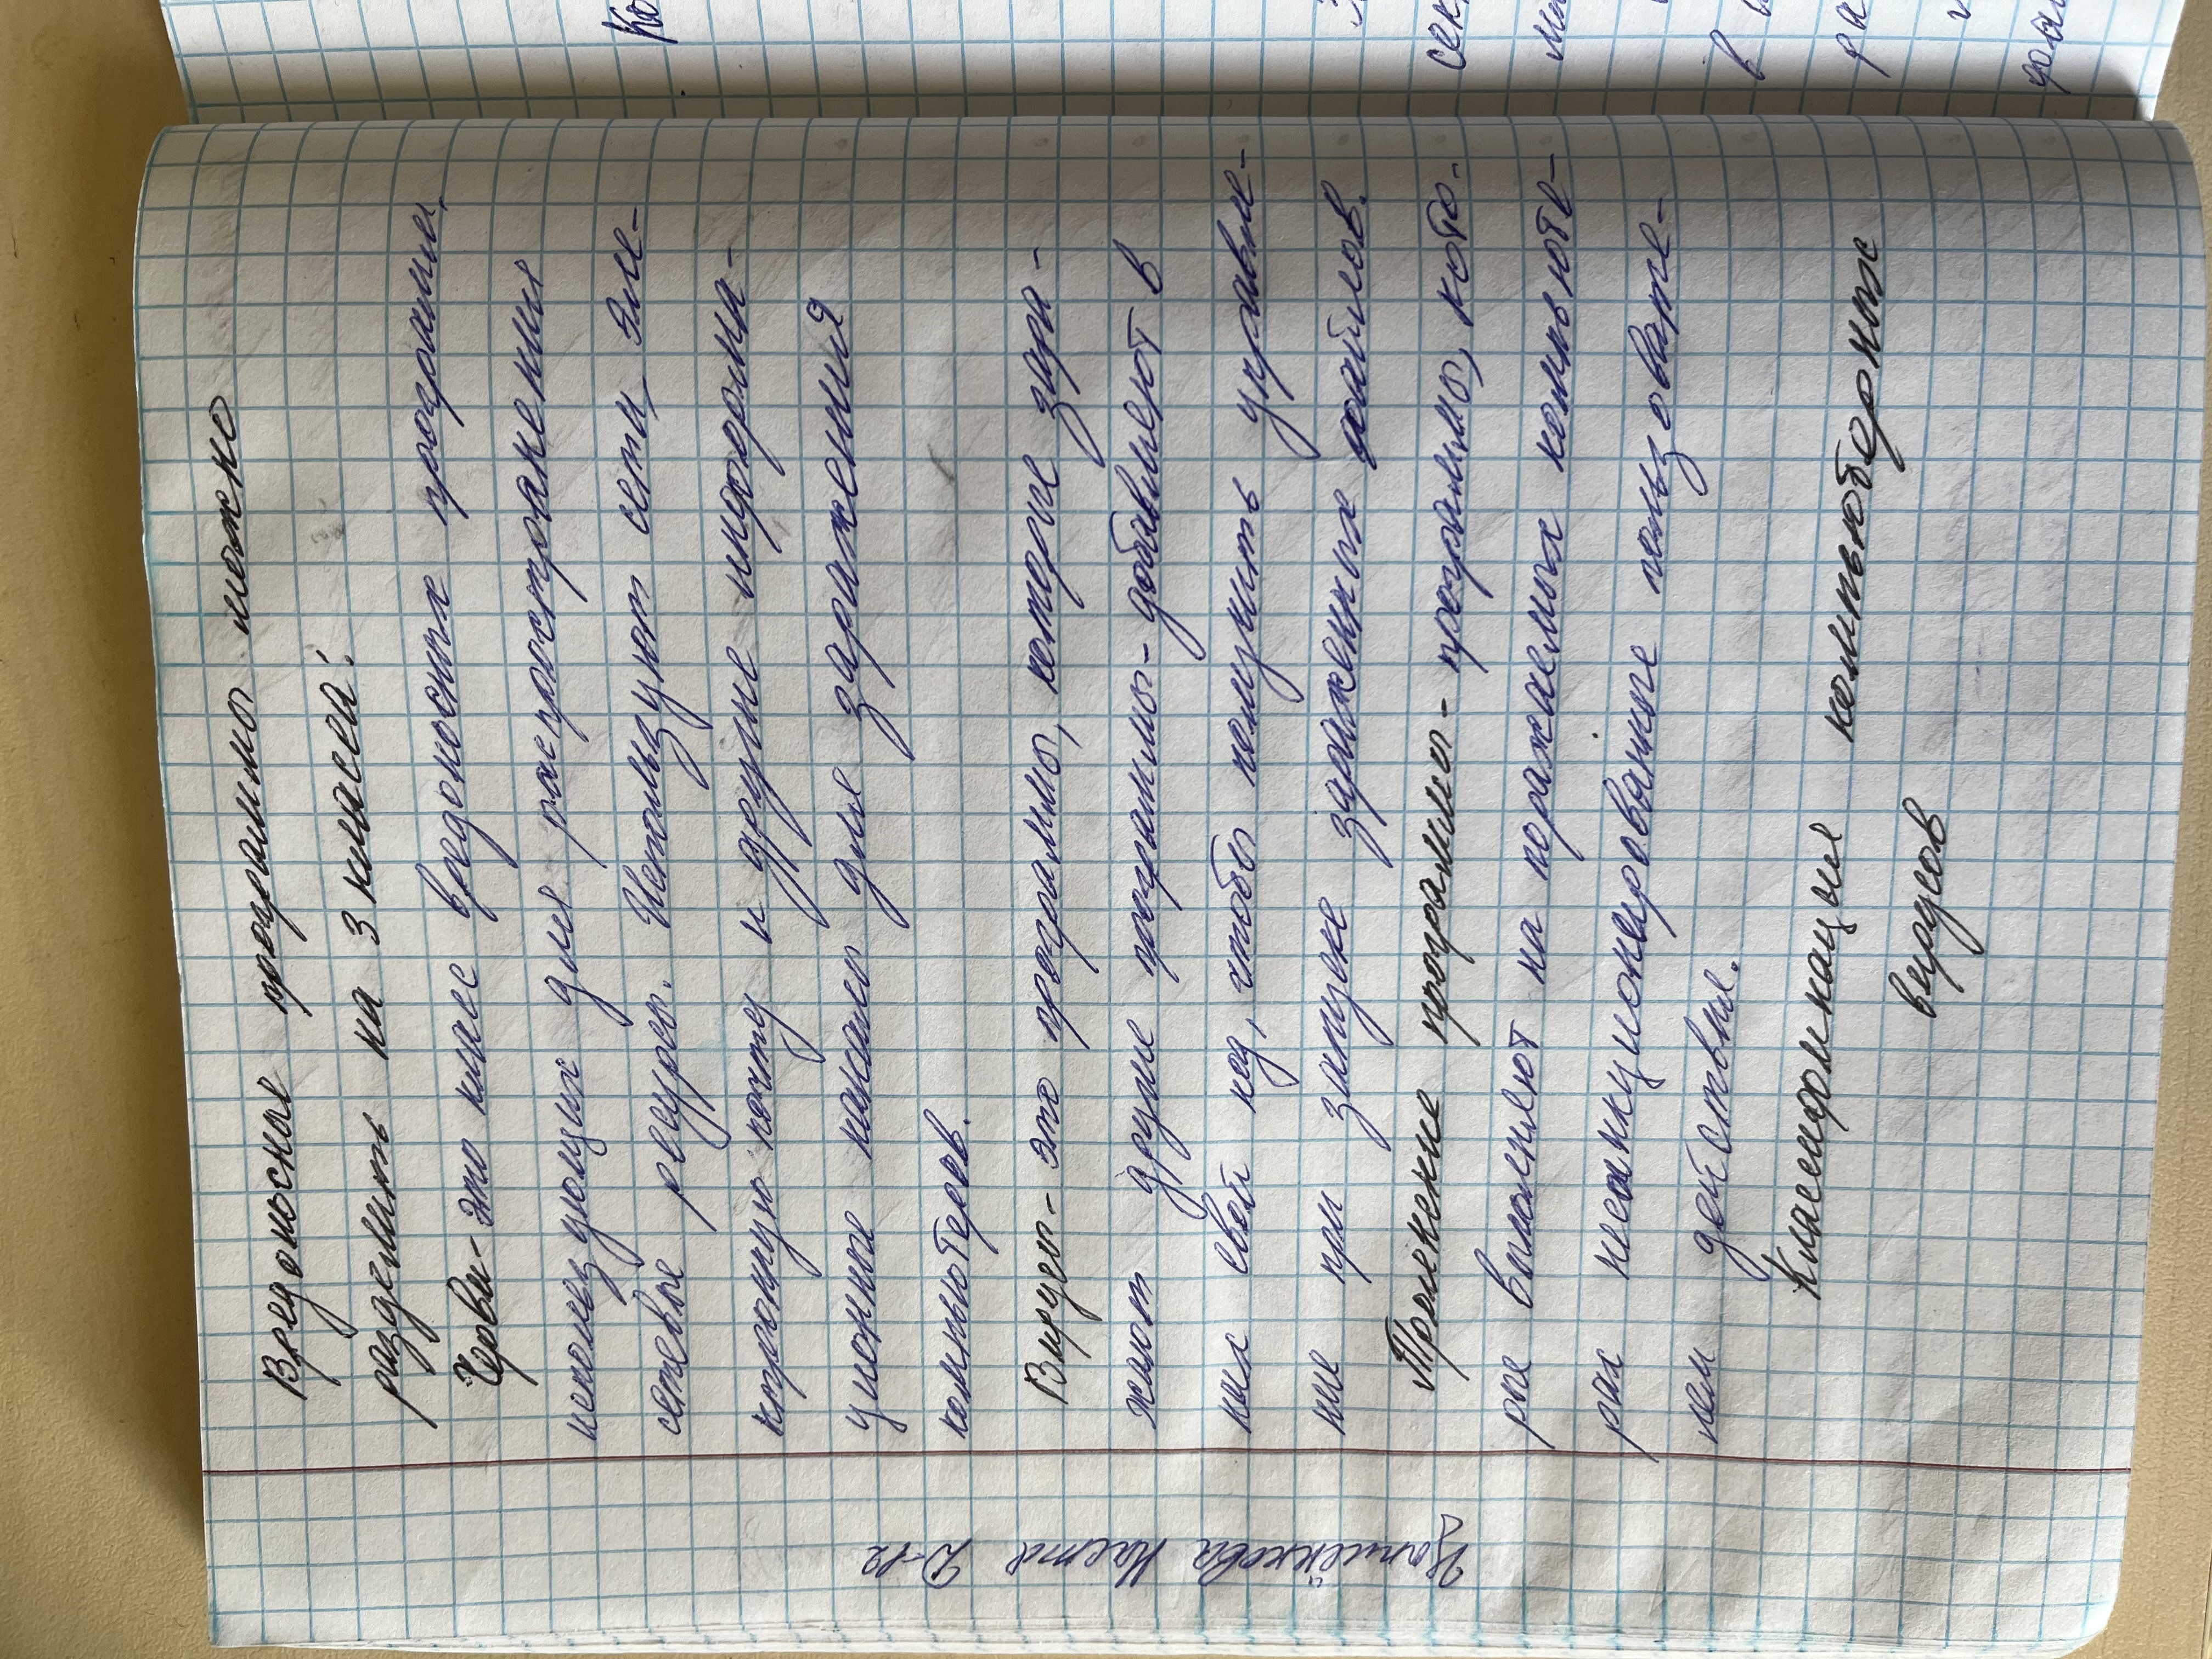 Вредоносные программы можно
разделить на 3 класса:
Черви- это класс вредоносных программ,
использующих для распространения
сетевые ресурсы. Используют сети, эле-
ктронную почту и другие информа-
ционные каналы для заражения
компьютеров.
Вирусы- это программы, которые зара-
жают другие программы- добавляют в
них свой код, чтобы получить управле-
ние при запуске зараженных файлов.
Троянские программы- программы, кото-
рые выполняют на поражаемых компьюте-
рах несанкционированные пользовате-
лем действия.
Классификация компьютерных
вирусов
Настя Д-12